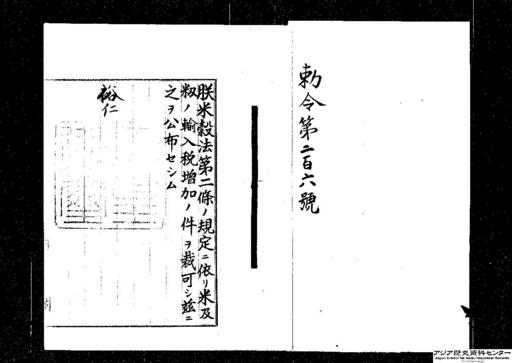 勅令第二百六號
朕米穀法第二條ノ規定ニ依リ米及
籾ノ輸入税増加ノ件ヲ裁可シ茲ニ
之ヲ公布セシム
裕仁
アジア歴史資料センター
Japan Center for Asian Historical Records